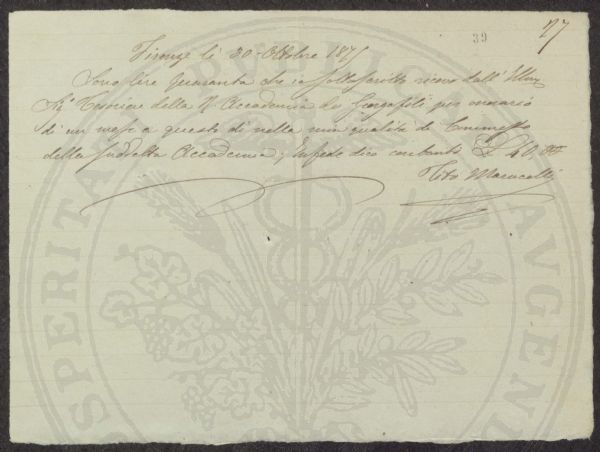 39
77
Firenze lì 30 Ottobre 1875
Sono lire Quaranta che io sottoscritto ricevo dall' Illmo
Sig. Tesoriere della R. Accademia dei Georgofili per onorario
di un mese a questo dì nella mia qualità di Commesso
della suddetta Accademia; In fede dico contanti £ 40,00
Tito
PROSPERITATI PUBLICAE AUGENDAE